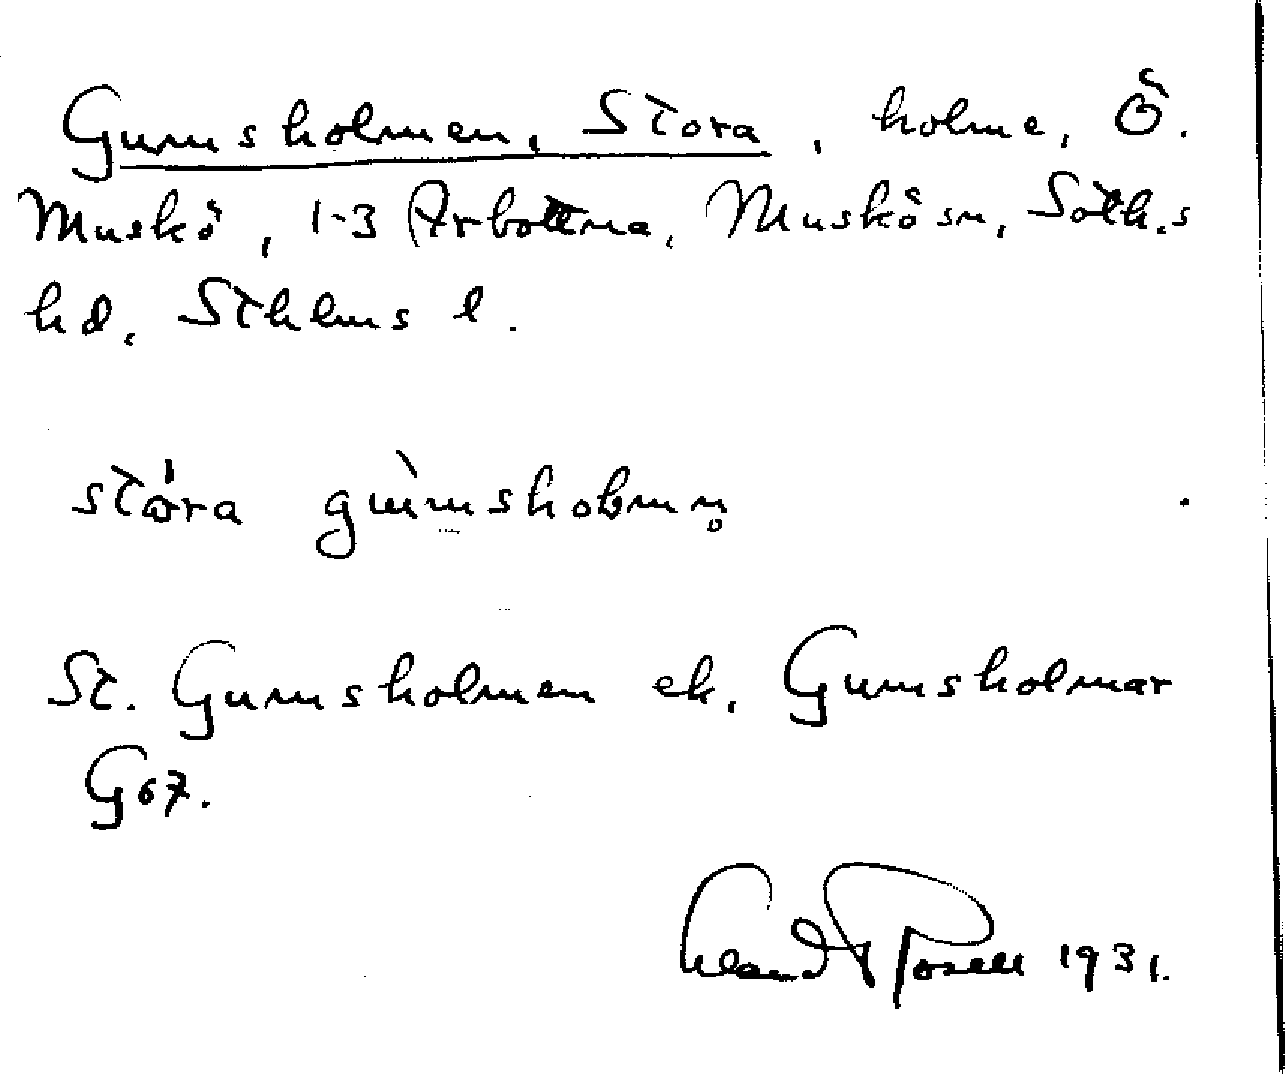 Gumsholmen, Stora, holme, Ö.
Muskö, 1-3 Arbottna, Muskö sn, Soth.s
hd, Sthlms l.
stóra gùmsholmn̥
St. Gumsholmen ek. Gumsholmar
G67.
Erland Rosell 1931.